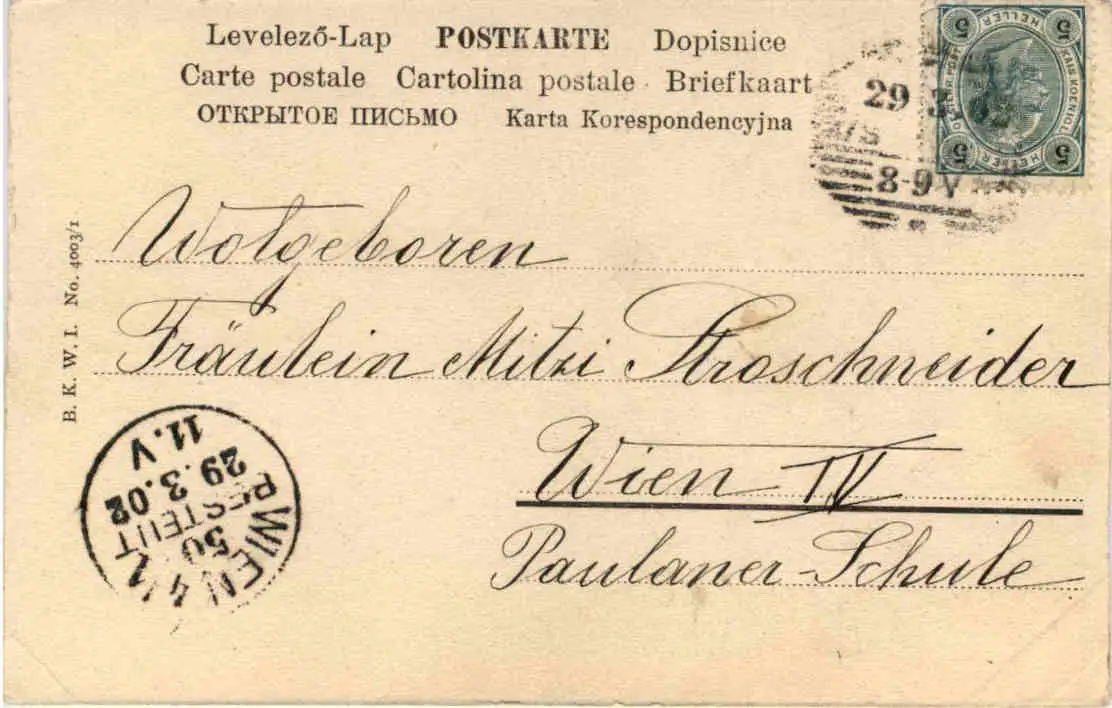 Levelező-Lap POSTKARTE Dopisnice
Carte postale Cartolina postale Briefkaart
ОТКРЫТОЕ ПИСЬМО Karta Korespondencyjna
5 HELLER 5
KAIS KOENIGL
5 HELLER 5
29 3 02
8-9V
Wolgeboren
Fräulein Mitzi Stroschneider
Wien IV
Paulaner-Schule
B. K. W. I. No. 4003/1
WIEN 4/1
50
BESTELLT
29.3.02
11.V